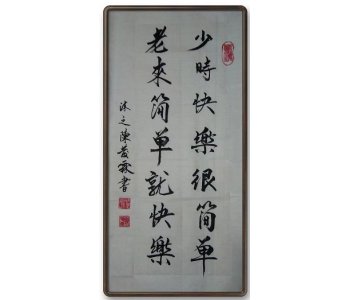 少時快樂很簡单
老來简单就快樂
沐之陳蒼霖書